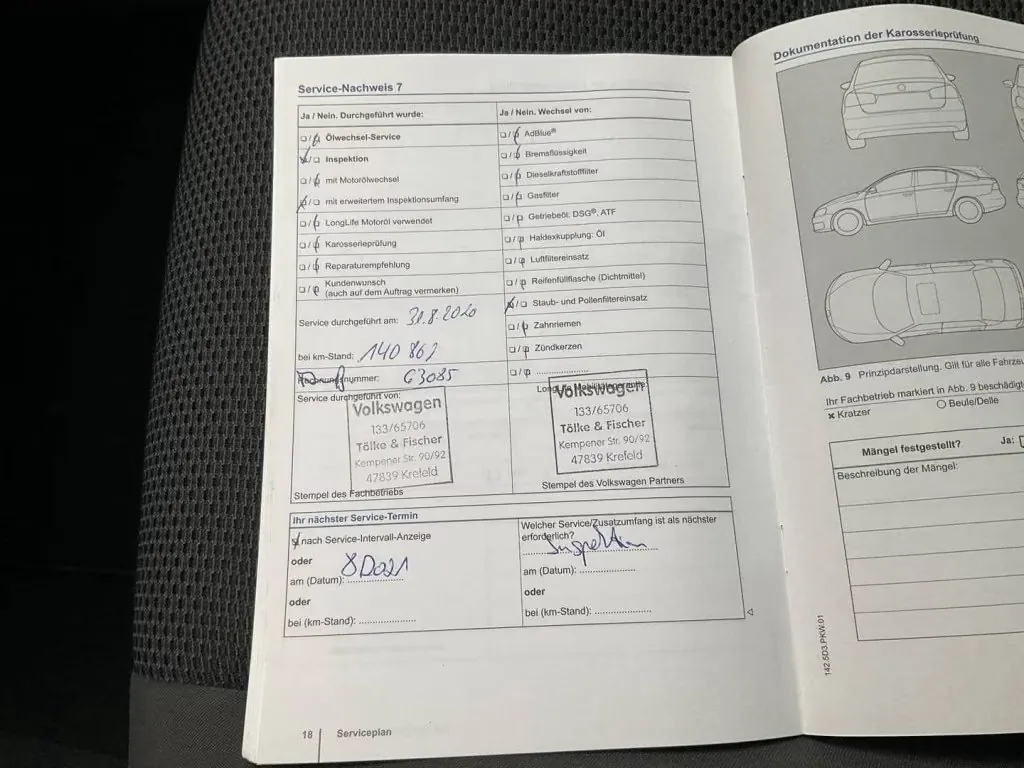 Service-Nachweis 7
Ja / Nein. Durchgeführt wurde:
Ölwechsel-Service
Inspektion
mit Motorölwechsel
mit erweitertem Inspektionsumfang
LongLife Motoröl verwendet
Karosserieprüfung
Reparaturempfehlung
Kundenwunsch
(auch auf dem Auftrag vermerken)
Service durchgeführt am: 31.8.2020
bei km-Stand: 140 862
nummer: 63085
Service durchgeführt von:
Volkswagen
133/65706
Tölke & Fischer
Kempener Str. 90/92
47839 Krefeld
Stempel des Fachbetriebs
Ja / Nein. Wechsel von:
AdBlue®
Bremsflüssigkeit
Dieselkraftstofffilter
Gasfilter
Getriebeöl: DSG®, ATF
Haldexkupplung: Öl
Luftfiltereinsatz
Reifenfüllflasche (Dichtmittel)
Staub- und Pollenfiltereinsatz
Zahnriemen
Zündkerzen
LongLife Mobilitätsgarantie
Volkswagen
133/65706
Tölke & Fischer
Kempener Str. 90/92
47839 Krefeld
Stempel des Volkswagen Partners
Ihr nächster Service-Termin
nach Service-Intervall-Anzeige
oder
am (Datum):
oder
bei (km-Stand):
Welcher Service/Zusatzumfang ist als nächster
erforderlich?
Inspektion
am (Datum):
oder
bei (km-Stand):
18 Serviceplan
Dokumentation der Karosserieprüfung
Abb. 9 Prinzipdarstellung. Gilt für alle Fahrze
Ihr Fachbetrieb markiert in Abb. 9 beschädigt
× Kratzer
Beule/Delle
Mängel festgestellt? Ja:
Beschreibung der Mängel:
142.5D3.PKW.01